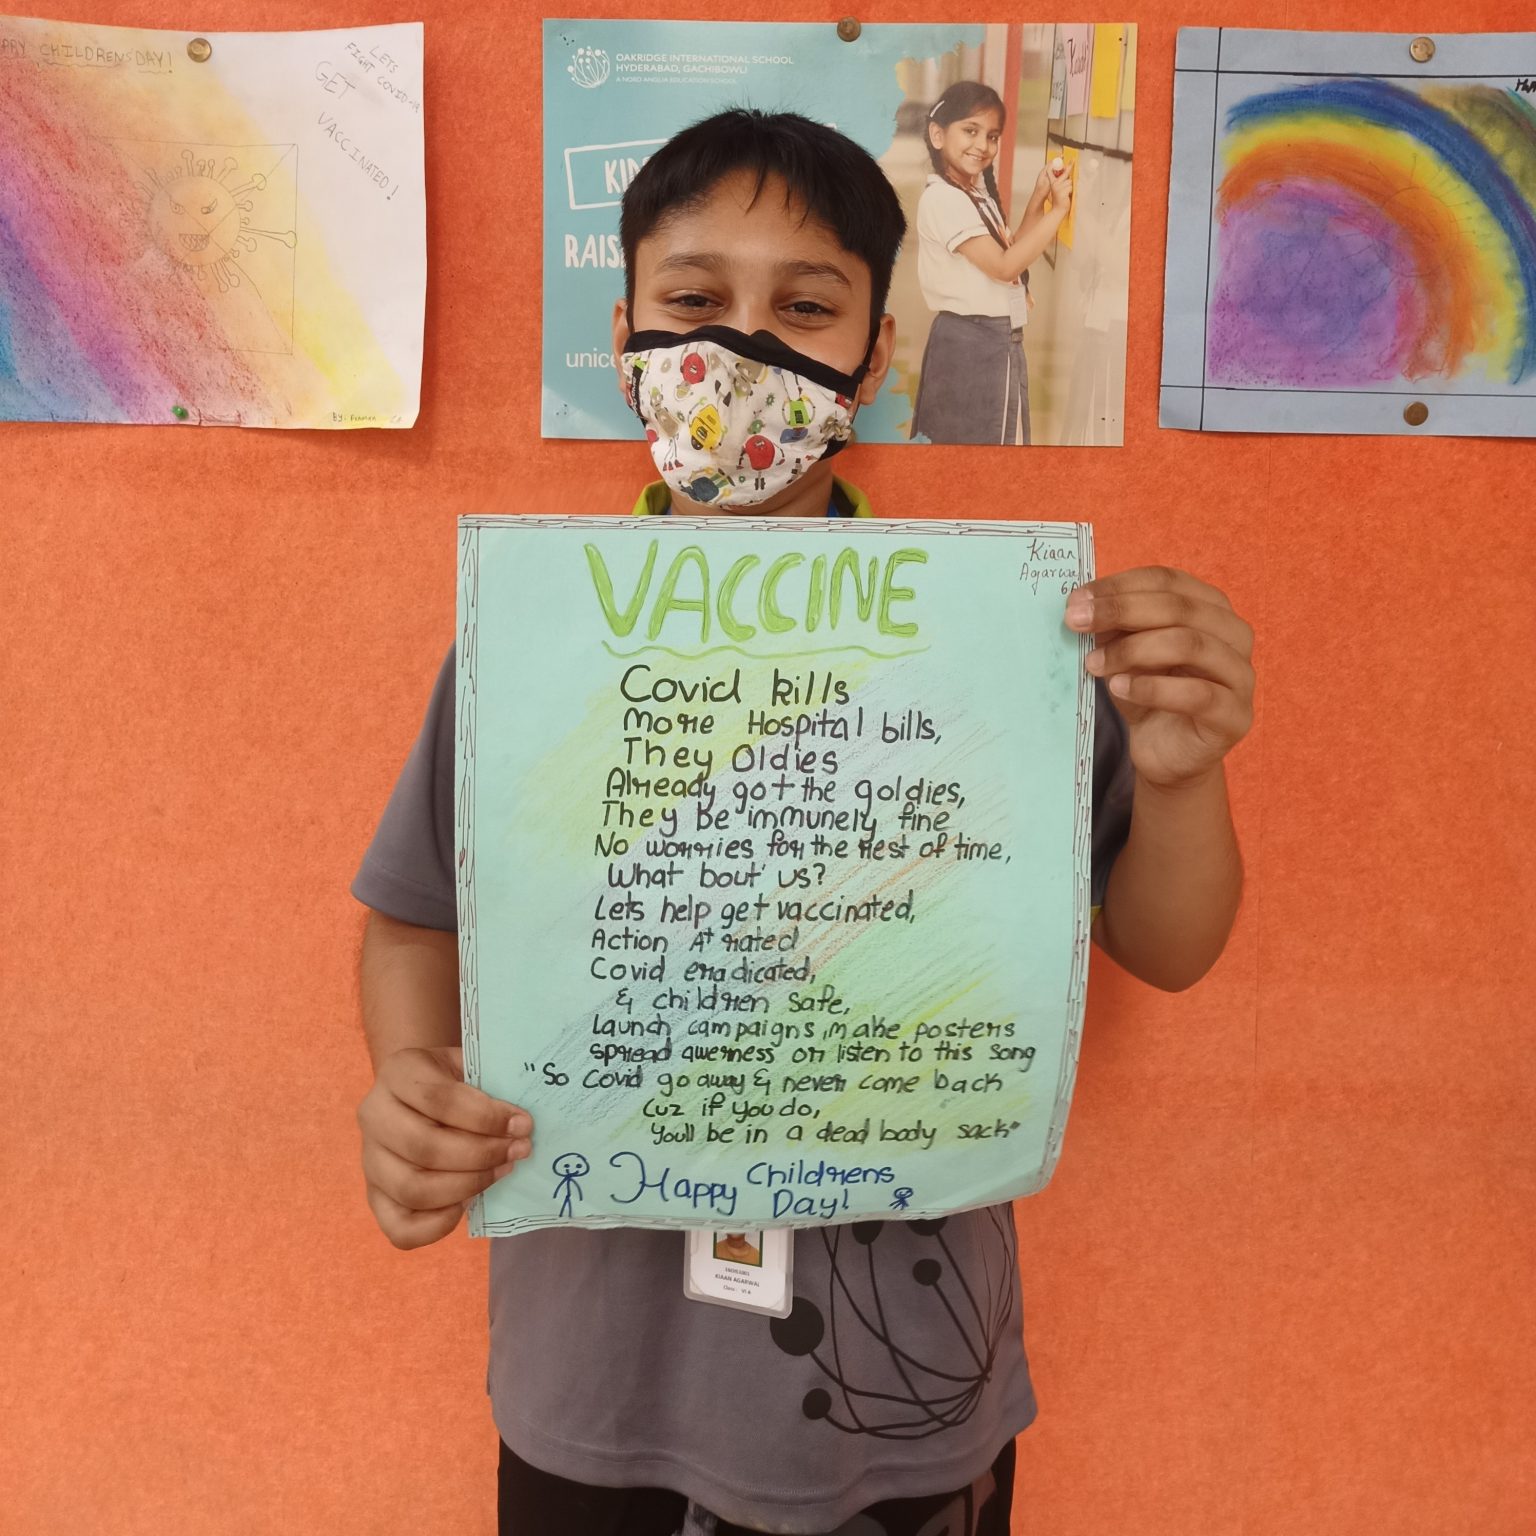 PPY CHILDRENSDAY!
LETS
FIGHT COVID-19
GET
VACCINATED!
By: Exhaan
OAKRIDGE INTERNATIONAL SCHOOL
HYDERABAD, GACHIBOWLI
A NORD ANGLIA EDUCATION SCHOOL
KID
RAIS
unice
VACCINE
Kiaan
Agarwal
6A
Covid kills
More Hospital bills,
They Oldies
Already got the goldies,
They be immunely fine
No worries for the rest of time,
What bout' us?
Lets help get vaccinated,
Action At rated
Covid eradicated,
& children safe,
Launch campaigns, make posters
spread awerness or listen to this song
"So Covid go away & never come back
Cuz if you do,
You'll be in a dead body sack"
Happy Childrens
Day!
KIAAN AGARWAL
Class : VI A